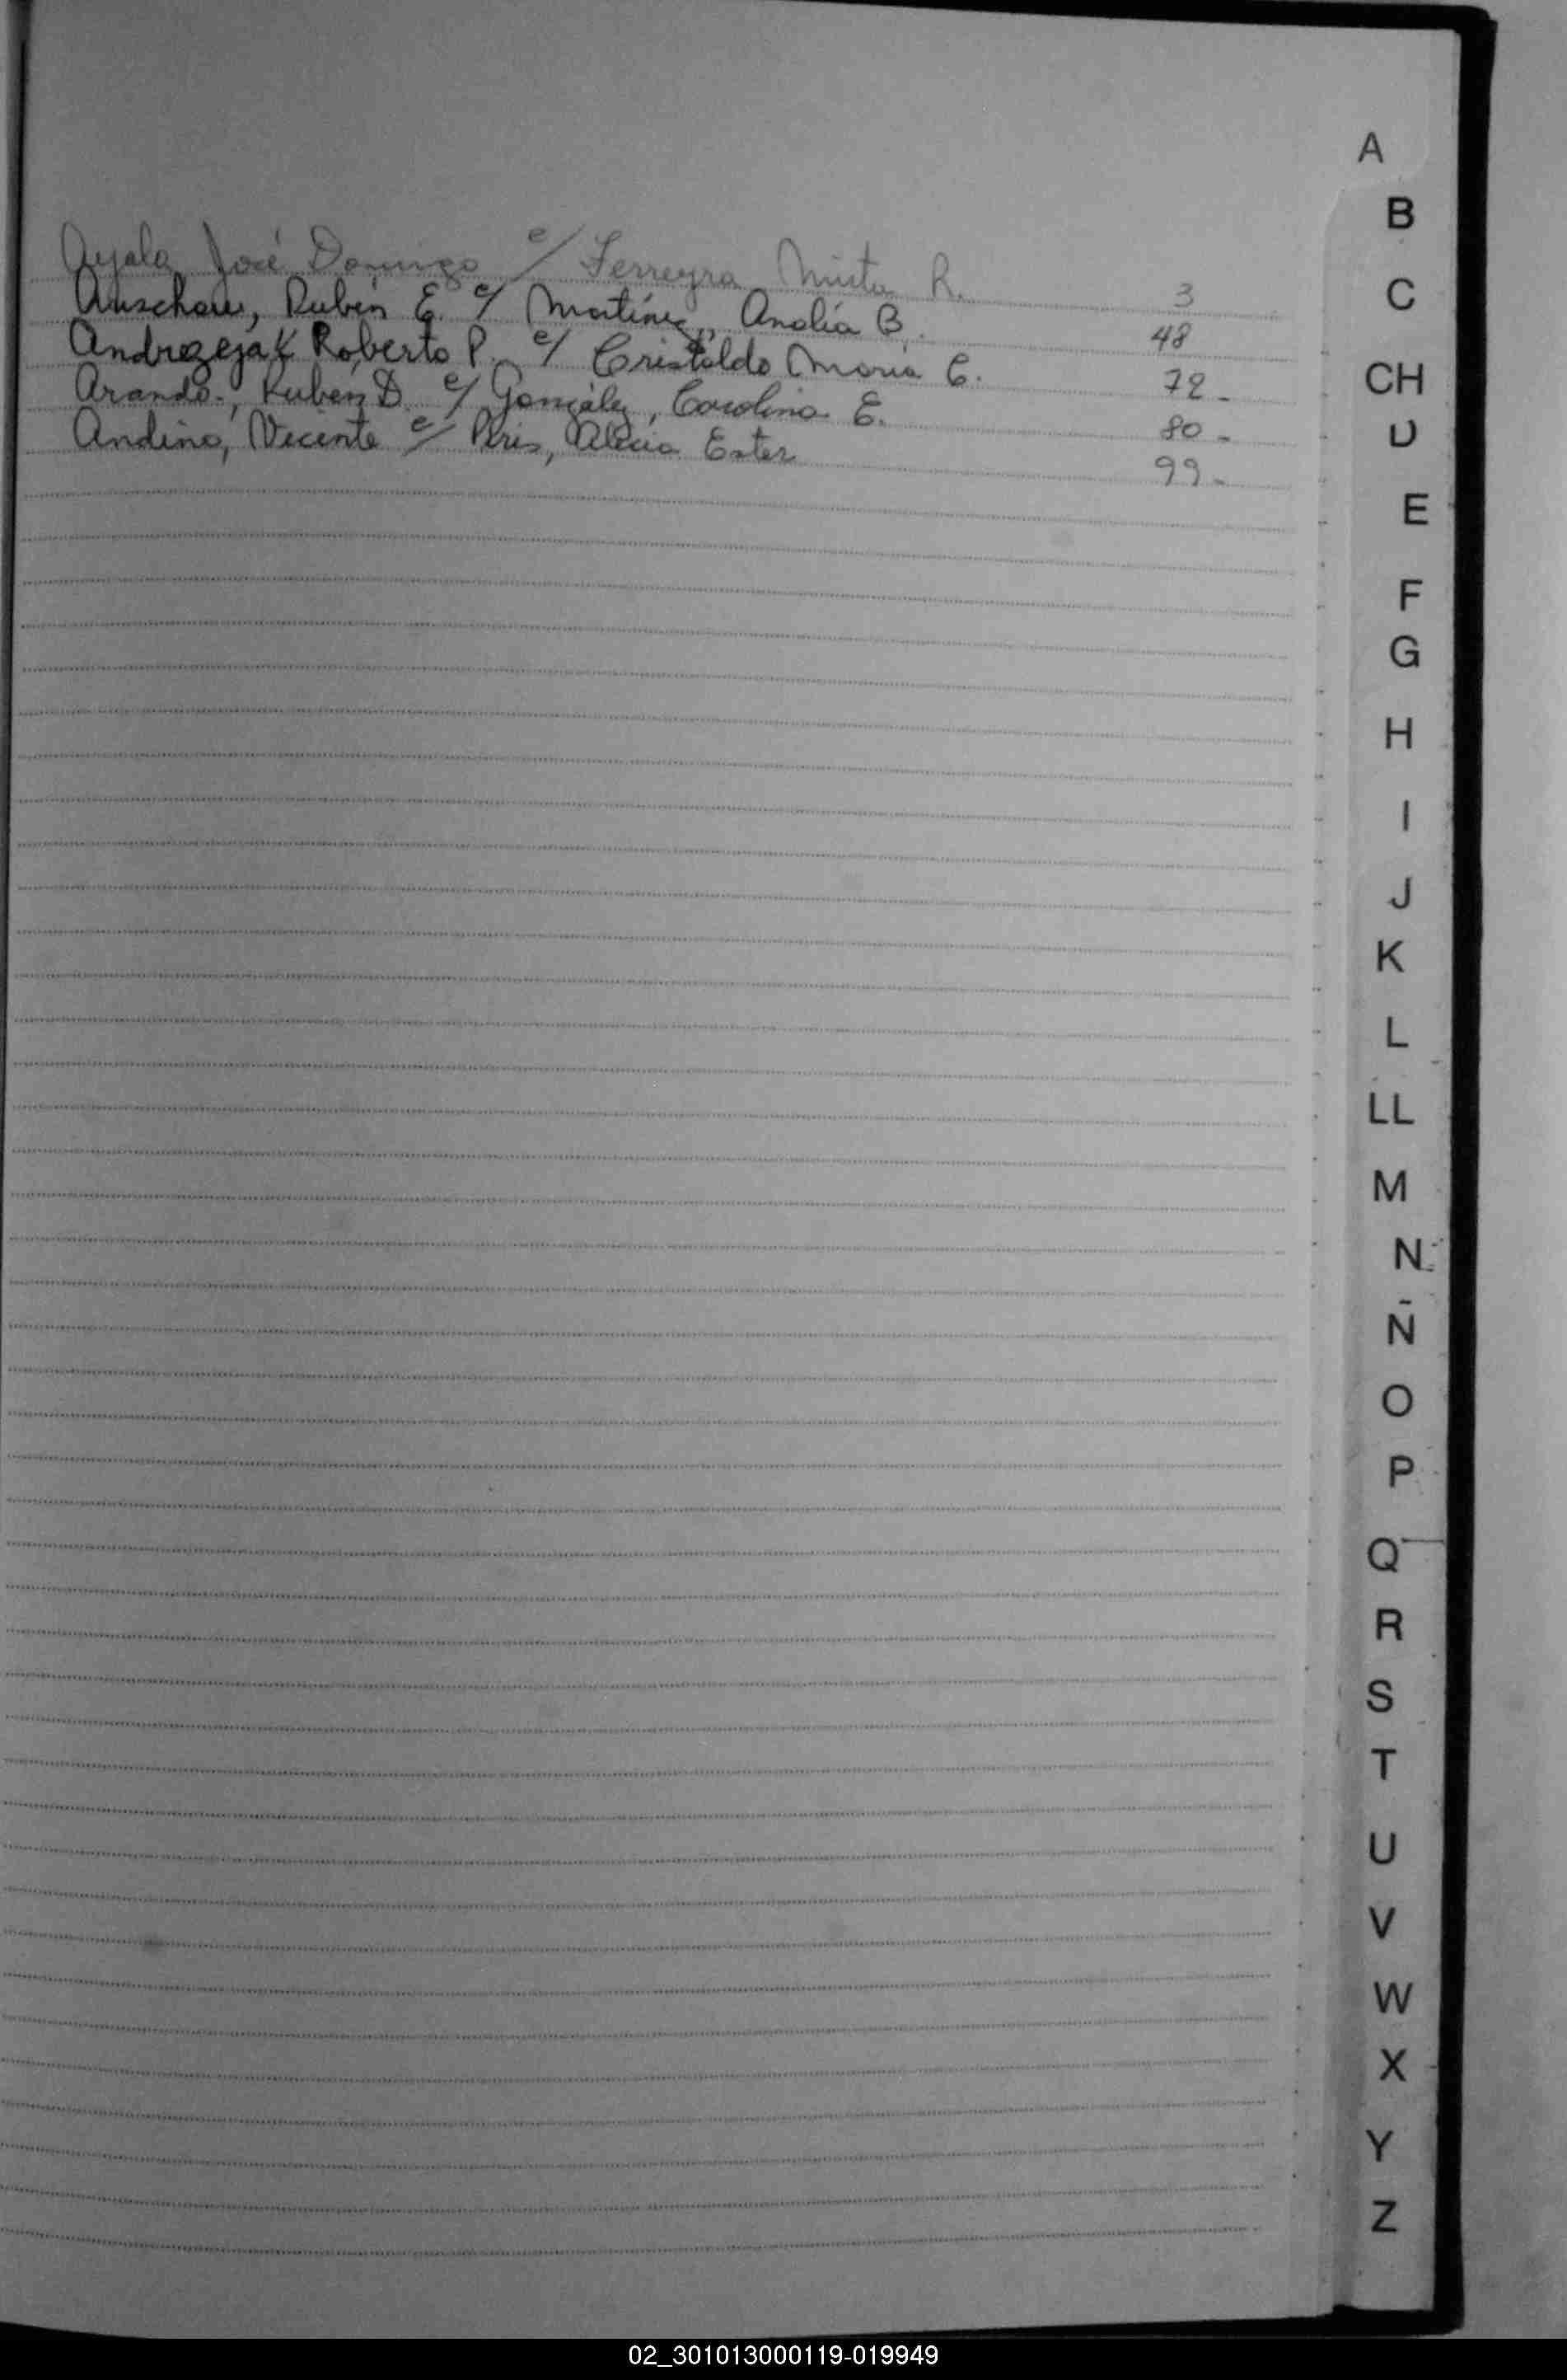 Ayala José Domingo c/ Ferreyra Mirta R. 3
Auschau, Rubén E. c/ Martínez, Analía B. 48
Andrezejak Roberto P. c/ Cristaldo María C. 72-
Aranda, Ruben D. c/ González, Carolina E. 80-
Andino, Vicente c/ Peris, Alicia Ester 99-
A
B
C
CH
D
E
F
G
H
I
J
K
L
LL
M
N
Ñ
O
P
Q
R
S
T
U
V
W
X
Y
Z
02_301013000119-019949